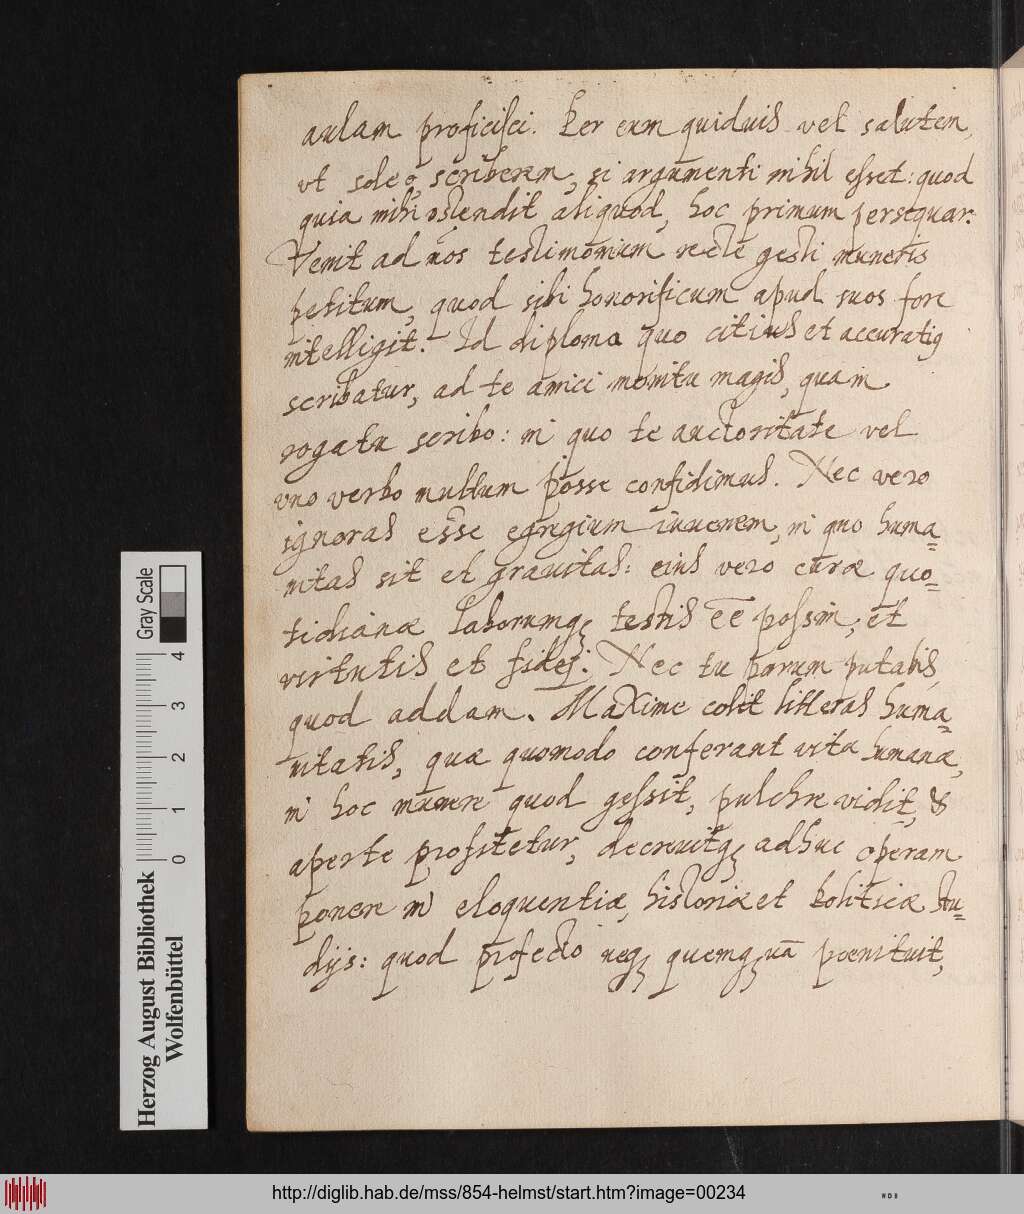 aulam proficisci. Per eum quiduis vel salutem,
vt soleo, scriberem, si argumenti nihil esset: quod
quia mihi ostendit aliquod, hoc primum persequar.
Venit ad nos testimonium recte gesti muneris
petitum, quod sibi honorificum apud suos fore
intelligit. Id diploma quo citius et accuratiꝰ
scribatur, ad te amici monitu magis, quam
rogatu scribo: in quo te auctoritate vel
vno verbo multum posse confidimus. Nec vero
ignoras esse egregium iuuenem, in quo huma=
nitas sit et grauitas: eius vero curæ quo=
tidianæ laborumqꝫ testis eē possim, et
virtutis et fidei. Nec tu parum putabis,
quod addam. Maxime colit litteras huma=
nitatis, quæ quomodo conferant vitæ humanæ,
in hoc munere quod gessit, pulchre vidit, &
aperte profitetur, decreuitqꝫ adhuc operam
ponere in eloquentiæ, historiæ et Politicæ stu=
dijs: quod profecto neqꝫ quemqꝫuā poenituit,
Gray Scale
4
3
2
1
0
Herzog August Bibliothek
Wolfenbüttel
http://diglib.hab.de/mss/854-helmst/start.htm?image=00234